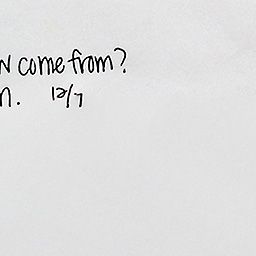 w come from?
n. 12/7